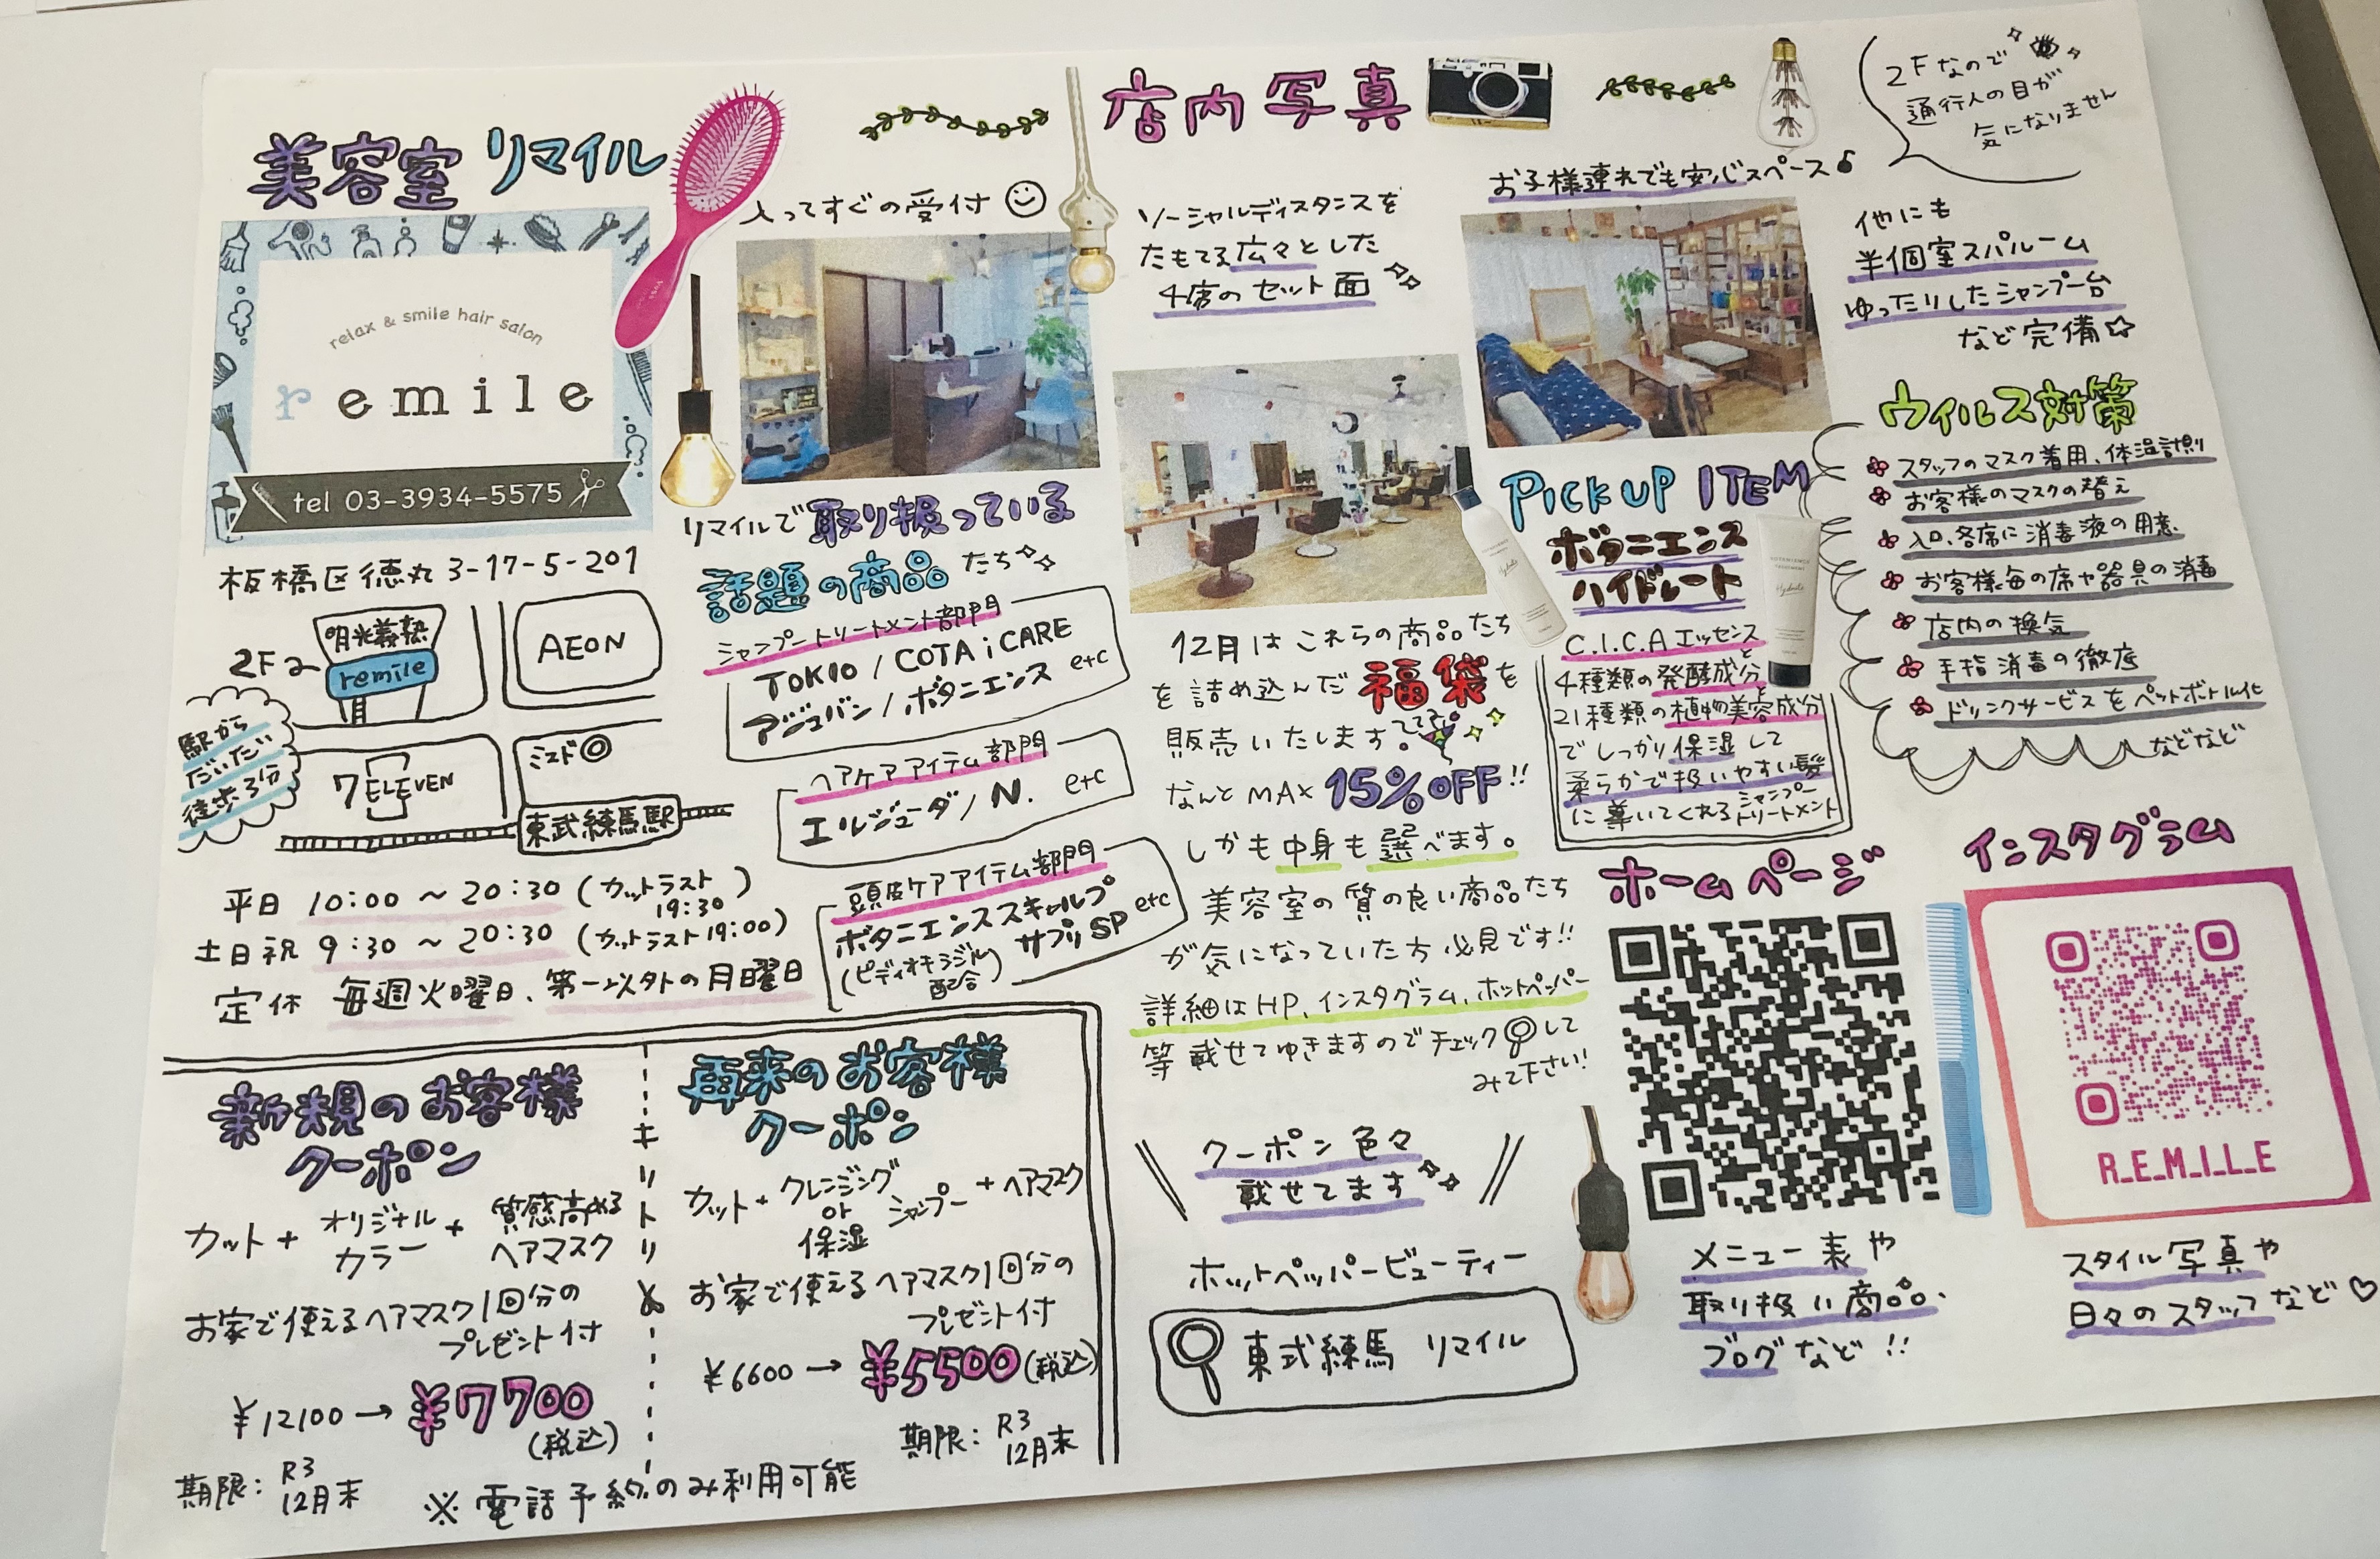 美容室 リマイル
relax & smile hair salon
remile
tel 03-3934-5575
板橋区徳丸3-17-5-201
明光義塾
2F
remile
AEON
駅から
だいたい
徒歩3分
7 ELEVEN
ミスド◎
東武練馬駅
平日 10:00 〜 20:30 (カットラスト 19:30)
土日祝 9:30 〜 20:30 (カットラスト19:00)
定休 毎週火曜日、第一以外の月曜日
新規のお客様
クーポン
カット + オリジナルカラー + 質感高めるヘアマスク
お家で使えるヘアマスク1回分の
プレゼント付
¥12100 → ¥7700
(税込)
期限: R3
12月末
キリトリ
再来のお客様
クーポン
カット + クレンジング or 保湿 シャンプー + ヘアマスク
お家で使えるヘアマスク1回分の
プレゼント付
¥6600 → ¥5500 (税込)
期限: R3
12月末
※電話予約のみ利用可能
入ってすぐの受付
リマイルで取り扱っている
話題の商品たち
シャンプートリートメント部門
TOKIO / COTA i CARE
アジュバン / ボタニエンス etc
ヘアケアアイテム部門
エルジューダ / N. etc
頭皮ケアアイテム部門
ボタニエンススキャルプ
サプリSP etc
(ピディオキシジル
配合)
店内写真
ソーシャルディスタンスを
たもてる広々とした
4席のセット面
お子様連れでも安心スペース♪
2Fなので
通行人の目が
気になりません
他にも
半個室スパルーム
ゆったりしたシャンプー台
など完備☆
12月はこれらの商品たち
を詰め込んだ福袋を
販売いたします。
なんとMAX 15%OFF!!
しかも中身も選べます。
美容室の質の良い商品たち
が気になっていた方必見です!!
詳細はHP、インスタグラム、ホットペッパー
等載せてゆきますのでチェックして
みて下さい!
クーポン色々
載せてます
ホットペッパービューティー
東武練馬 リマイル
PICK UP ITEM
ボタニエンス
ハイドレート
C.I.C.Aエッセンスと
4種類の発酵成分と
21種類の植物美容成分
でしっかり保湿して
柔らかで扱いやすい髪
に導いてくれるシャンプートリートメント
ウイルス対策
スタッフのマスク着用、体温計測
お客様のマスクの替え
入口、各席に消毒液の用意
お客様毎の席や器具の消毒
店内の換気
手指消毒の徹底
ドリンクサービスをペットボトル化
などなど
ホームページ
メニュー表や
取り扱い商品、
ブログなど!!
インスタグラム
R_E_M_I_L_E
スタイル写真や
日々のスタッフなど♡